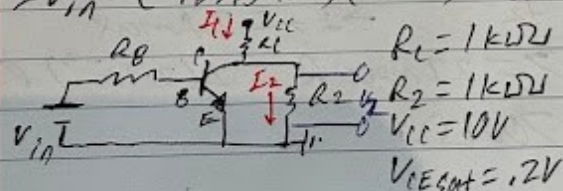 Vin
I1↓ Vcc
RL
RB
C
B
E
I2
↓
R2
V2
Vin
RL = 1kΩ
R2 = 1kΩ
Vcc = 10V
VCESat = .2V